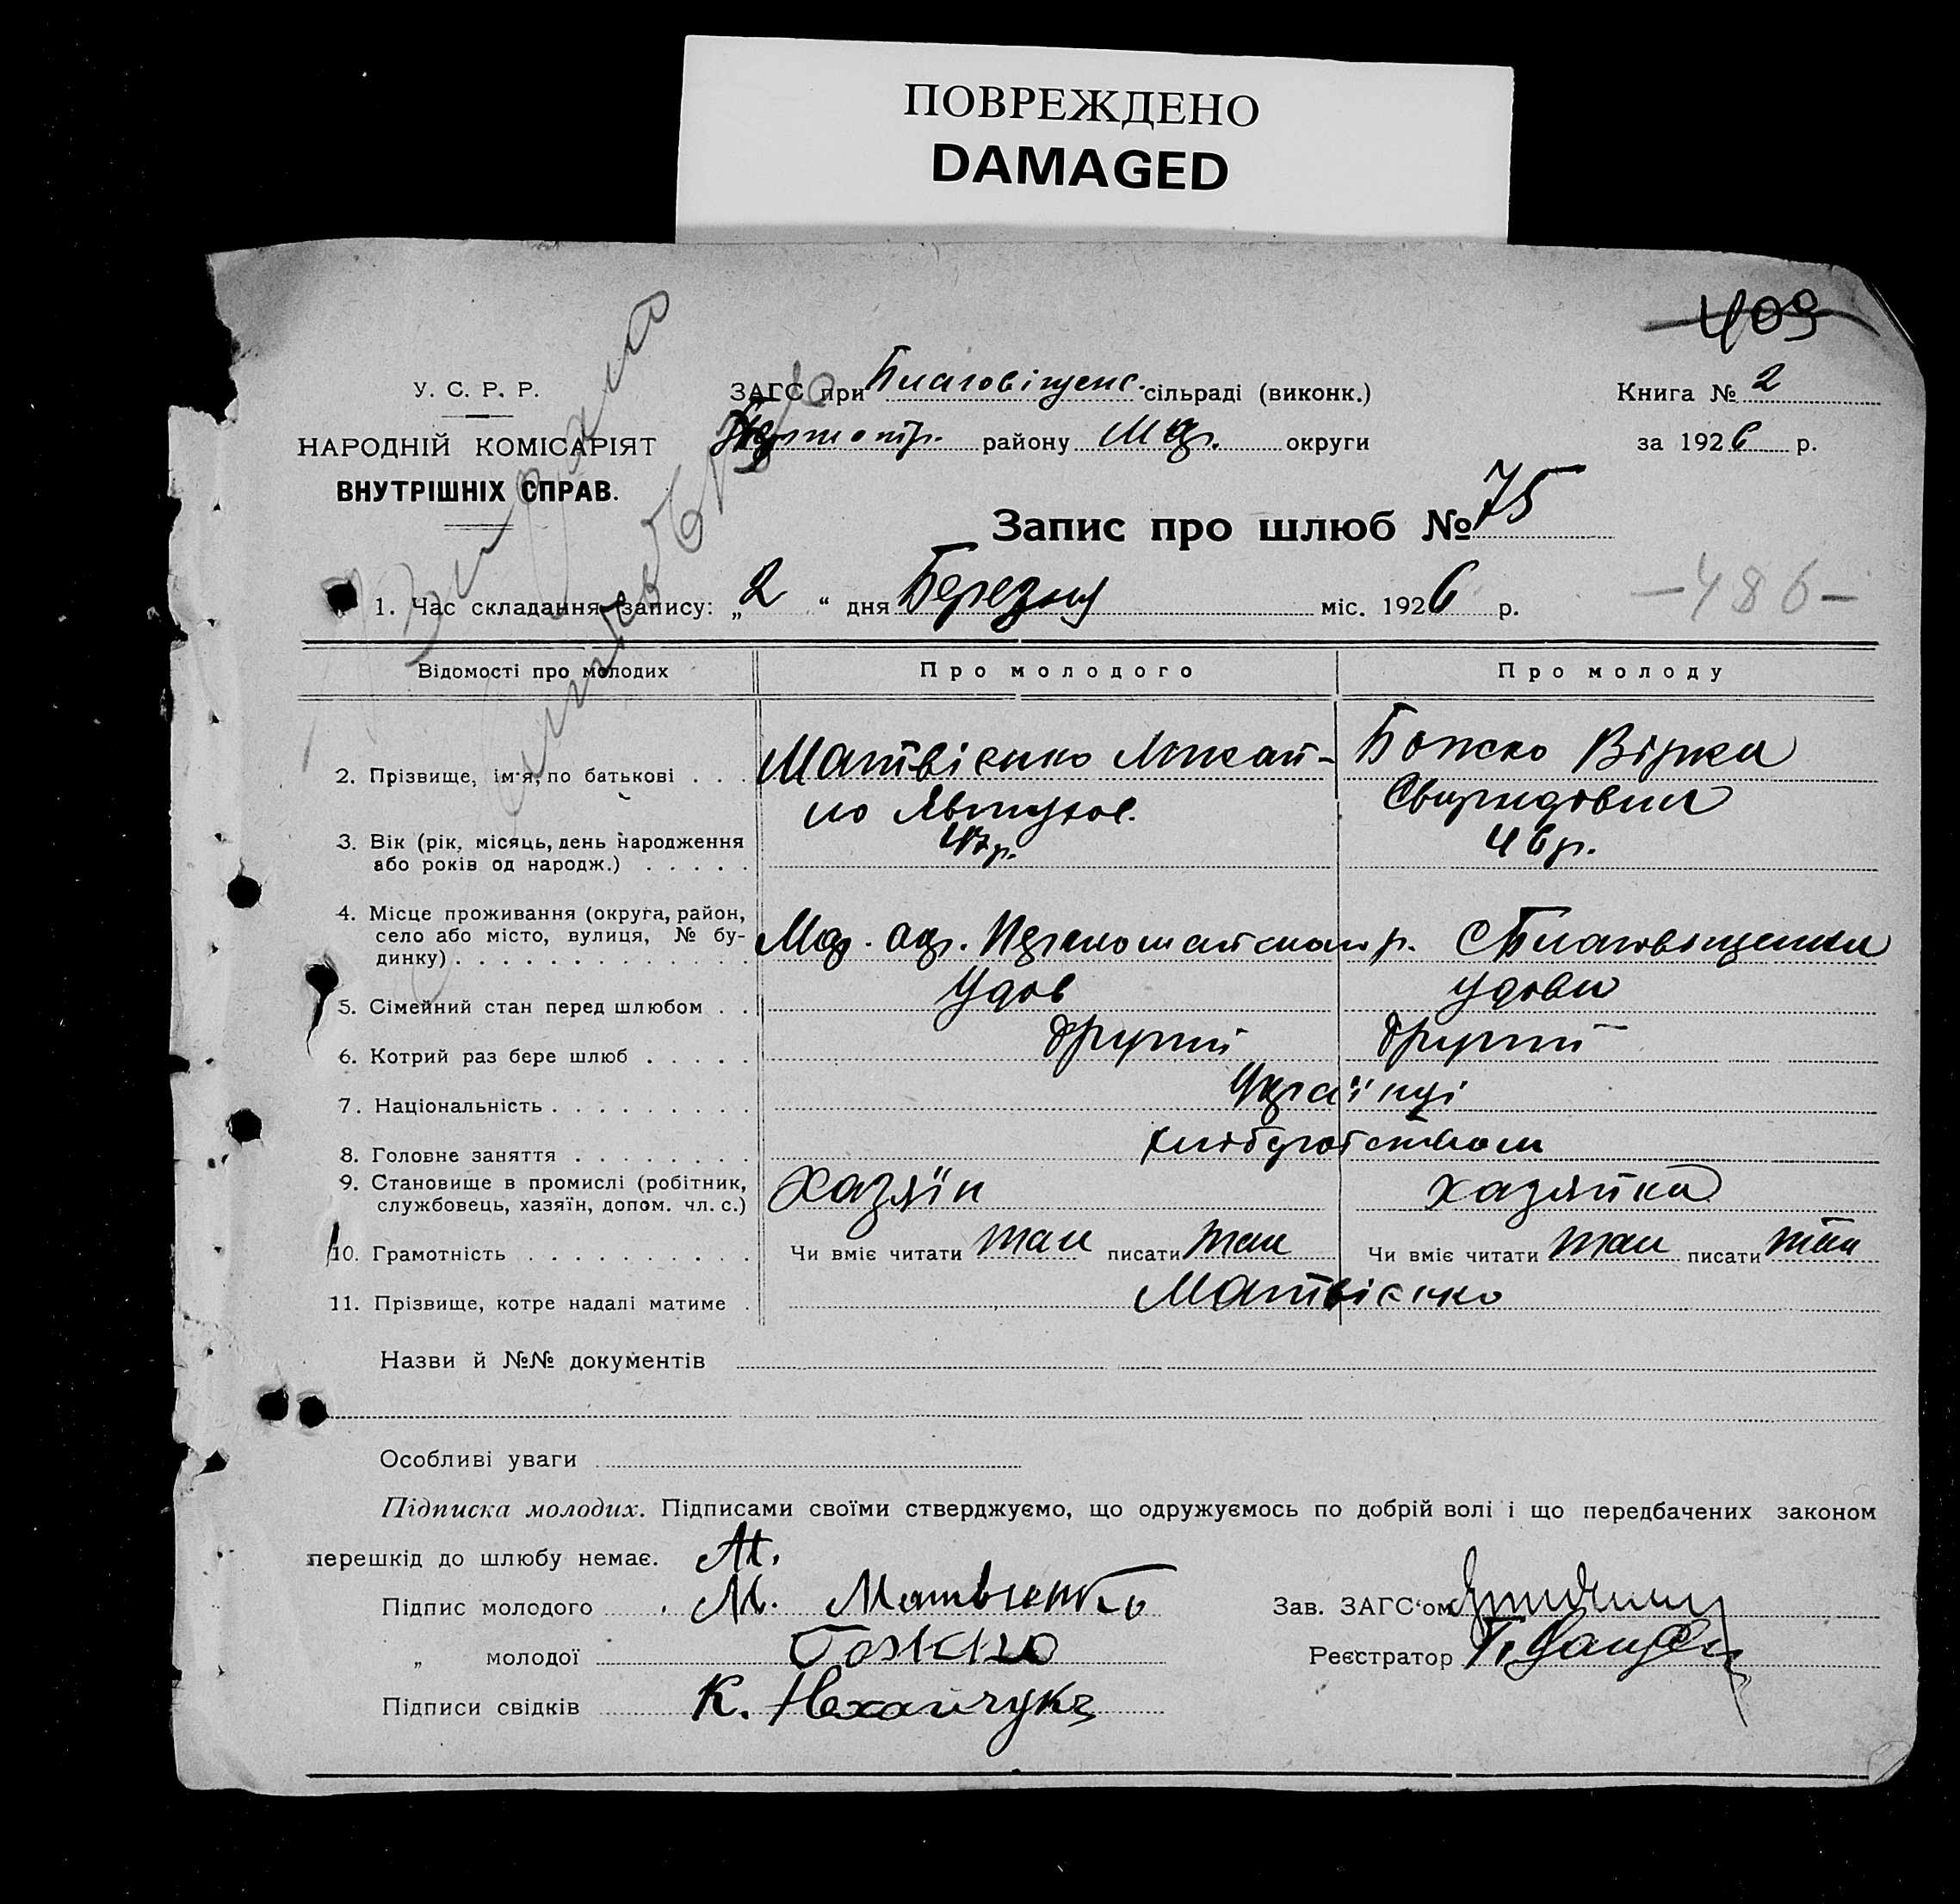 ПОВРЕЖДЕНО
DAMAGED
409
У. С. Р. Р.
НАРОДНІЙ КОМІСАРІЯТ
ВНУТРІШНІХ СПРАВ.
ЗАГС при Благовіщенс. сільраді (виконк.)
району Мар. округи
Книга № 2
за 1926 р.
Запис про шлюб № 75
1. Час складання запису: „2“ дня Березня міс. 1926 р.
-486-
Відомості про молодих Про молодого Про молоду
2. Прізвище, ім'я, по батькові . . . Матвієнко Михай- Божко Вірка
ло Явтухов. Свиридовна
3. Вік (рік, місяць, день народження
або років од народж.) . . . . . 47 р. 46 р.
4. Місце проживання (округа, район,
село або місто, вулиця, № бу-
динку) . . . . . . . . . . . . . Мар. окр. р. с Благовіщенка
5. Сімейний стан перед шлюбом . . Удов удова
6. Котрий раз бере шлюб . . . . . другий другий
7. Національність . . . . . . . . . Українці
8. Головне заняття . . . . . . . .
9. Становище в промислі (робітник,
службовець, хазяїн, допом. чл. с.) Хазяїн хазяйка
10. Грамотність . . . . . . . . . . Чи вміє читати так писати так Чи вміє читати так писати так
11. Прізвище, котре надалі матиме . Матвієнко
Назви й №№ документів
Особливі уваги
Підписка молодих. Підписами своїми стверджуємо, що одружуємось по добрій волі і що передбачених законом
перешкід до шлюбу немає.
Підпис молодого М. Матвієнко
Зав. ЗАГС'ом
„ молодої Божко
Реєстратор
Підписи свідків К.